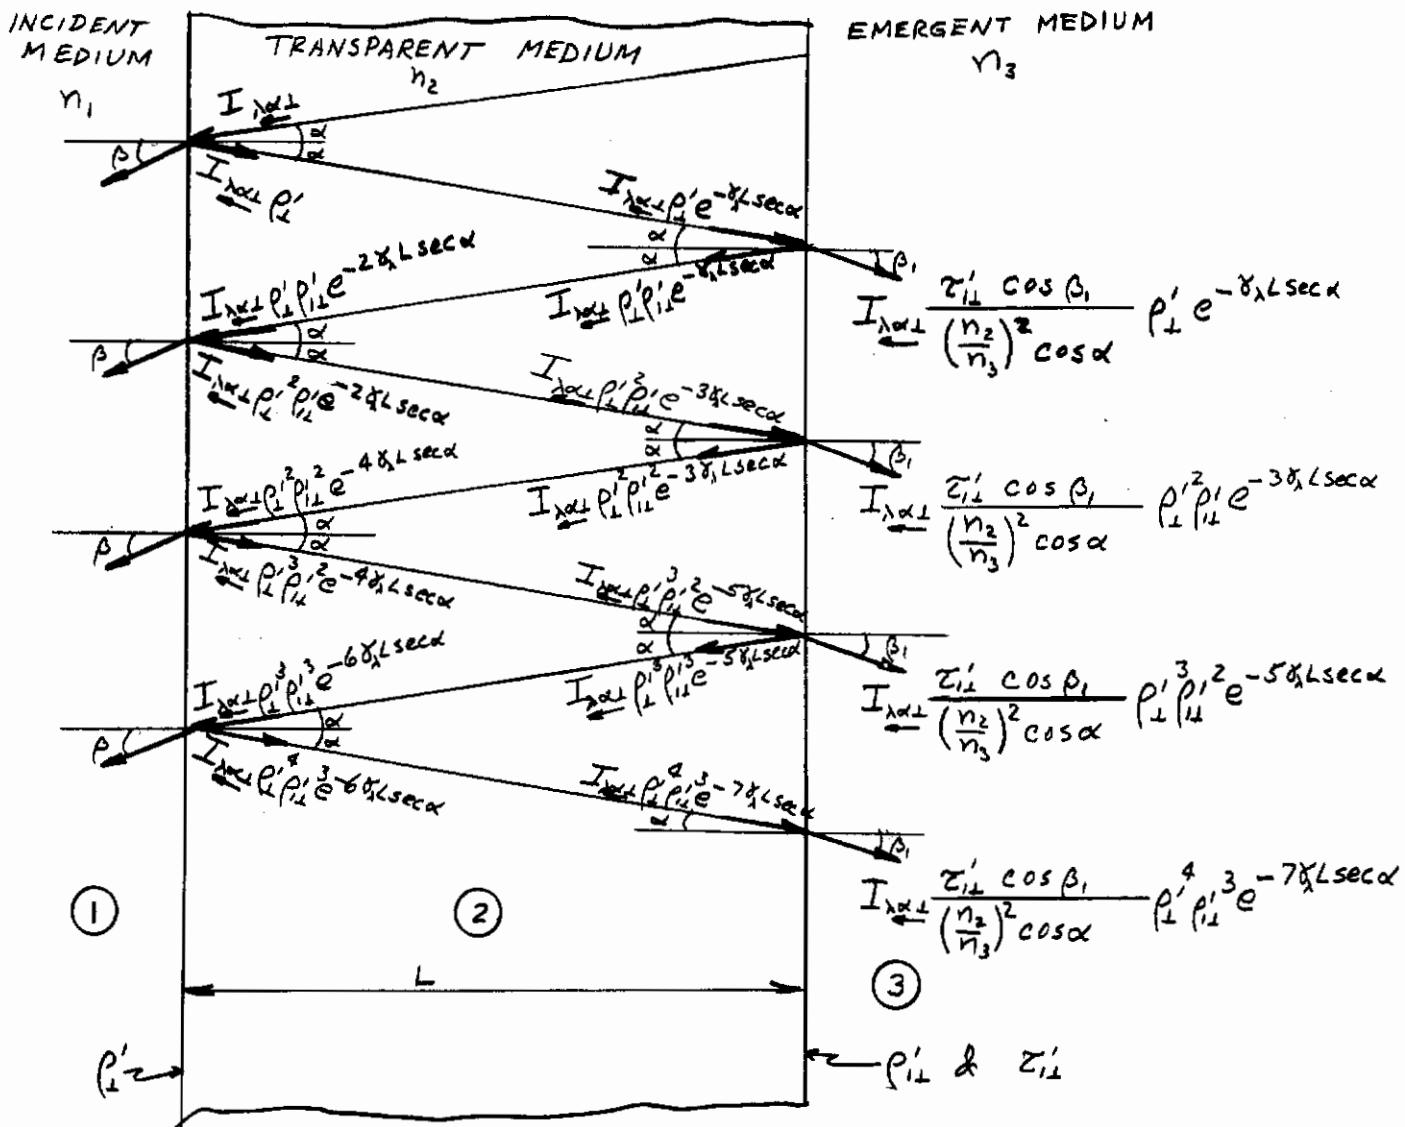 INCIDENT MEDIUM
n₁
TRANSPARENT MEDIUM
n₂
EMERGENT MEDIUM
n₃
I_λα⊥
α
α
β
I_λα⊥ ρ'_⊥
I_λα⊥ ρ'_⊥ e^(-γ_λ L sec α)
α
α
β₁
I_λα⊥ ρ'_⊥ ρ'_1⊥ e^(-γ_λ L sec α)
I_λα⊥ (τ'_1⊥ cos β₁)/((n₂/n₃)² cos α) ρ'_⊥ e^(-γ_λ L sec α)
I_λα⊥ ρ'_⊥ ρ'_1⊥ e^(-2γ_λ L sec α)
α
α
β
I_λα⊥ ρ'_⊥² ρ'_1⊥ e^(-2γ_λ L sec α)
I_λα⊥ ρ'_⊥² ρ'_1⊥ e^(-3γ_λ L sec α)
α
α
β₁
I_λα⊥ ρ'_⊥² ρ'_1⊥² e^(-3γ_λ L sec α)
I_λα⊥ (τ'_1⊥ cos β₁)/((n₂/n₃)² cos α) ρ'_⊥² ρ'_1⊥ e^(-3γ_λ L sec α)
I_λα⊥ ρ'_⊥² ρ'_1⊥² e^(-4γ_λ L sec α)
α
α
β
I_λα⊥ ρ'_⊥³ ρ'_1⊥² e^(-4γ_λ L sec α)
I_λα⊥ ρ'_⊥³ ρ'_1⊥² e^(-5γ_λ L sec α)
α
α
β₁
I_λα⊥ ρ'_⊥³ ρ'_1⊥³ e^(-5γ_λ L sec α)
I_λα⊥ (τ'_1⊥ cos β₁)/((n₂/n₃)² cos α) ρ'_⊥³ ρ'_1⊥² e^(-5γ_λ L sec α)
I_λα⊥ ρ'_⊥³ ρ'_1⊥³ e^(-6γ_λ L sec α)
α
α
β
I_λα⊥ ρ'_⊥⁴ ρ'_1⊥³ e^(-6γ_λ L sec α)
I_λα⊥ ρ'_⊥⁴ ρ'_1⊥³ e^(-7γ_λ L sec α)
α
β₁
I_λα⊥ (τ'_1⊥ cos β₁)/((n₂/n₃)² cos α) ρ'_⊥⁴ ρ'_1⊥³ e^(-7γ_λ L sec α)
①
②
③
L
ρ'_⊥
ρ'_1⊥ & τ'_1⊥